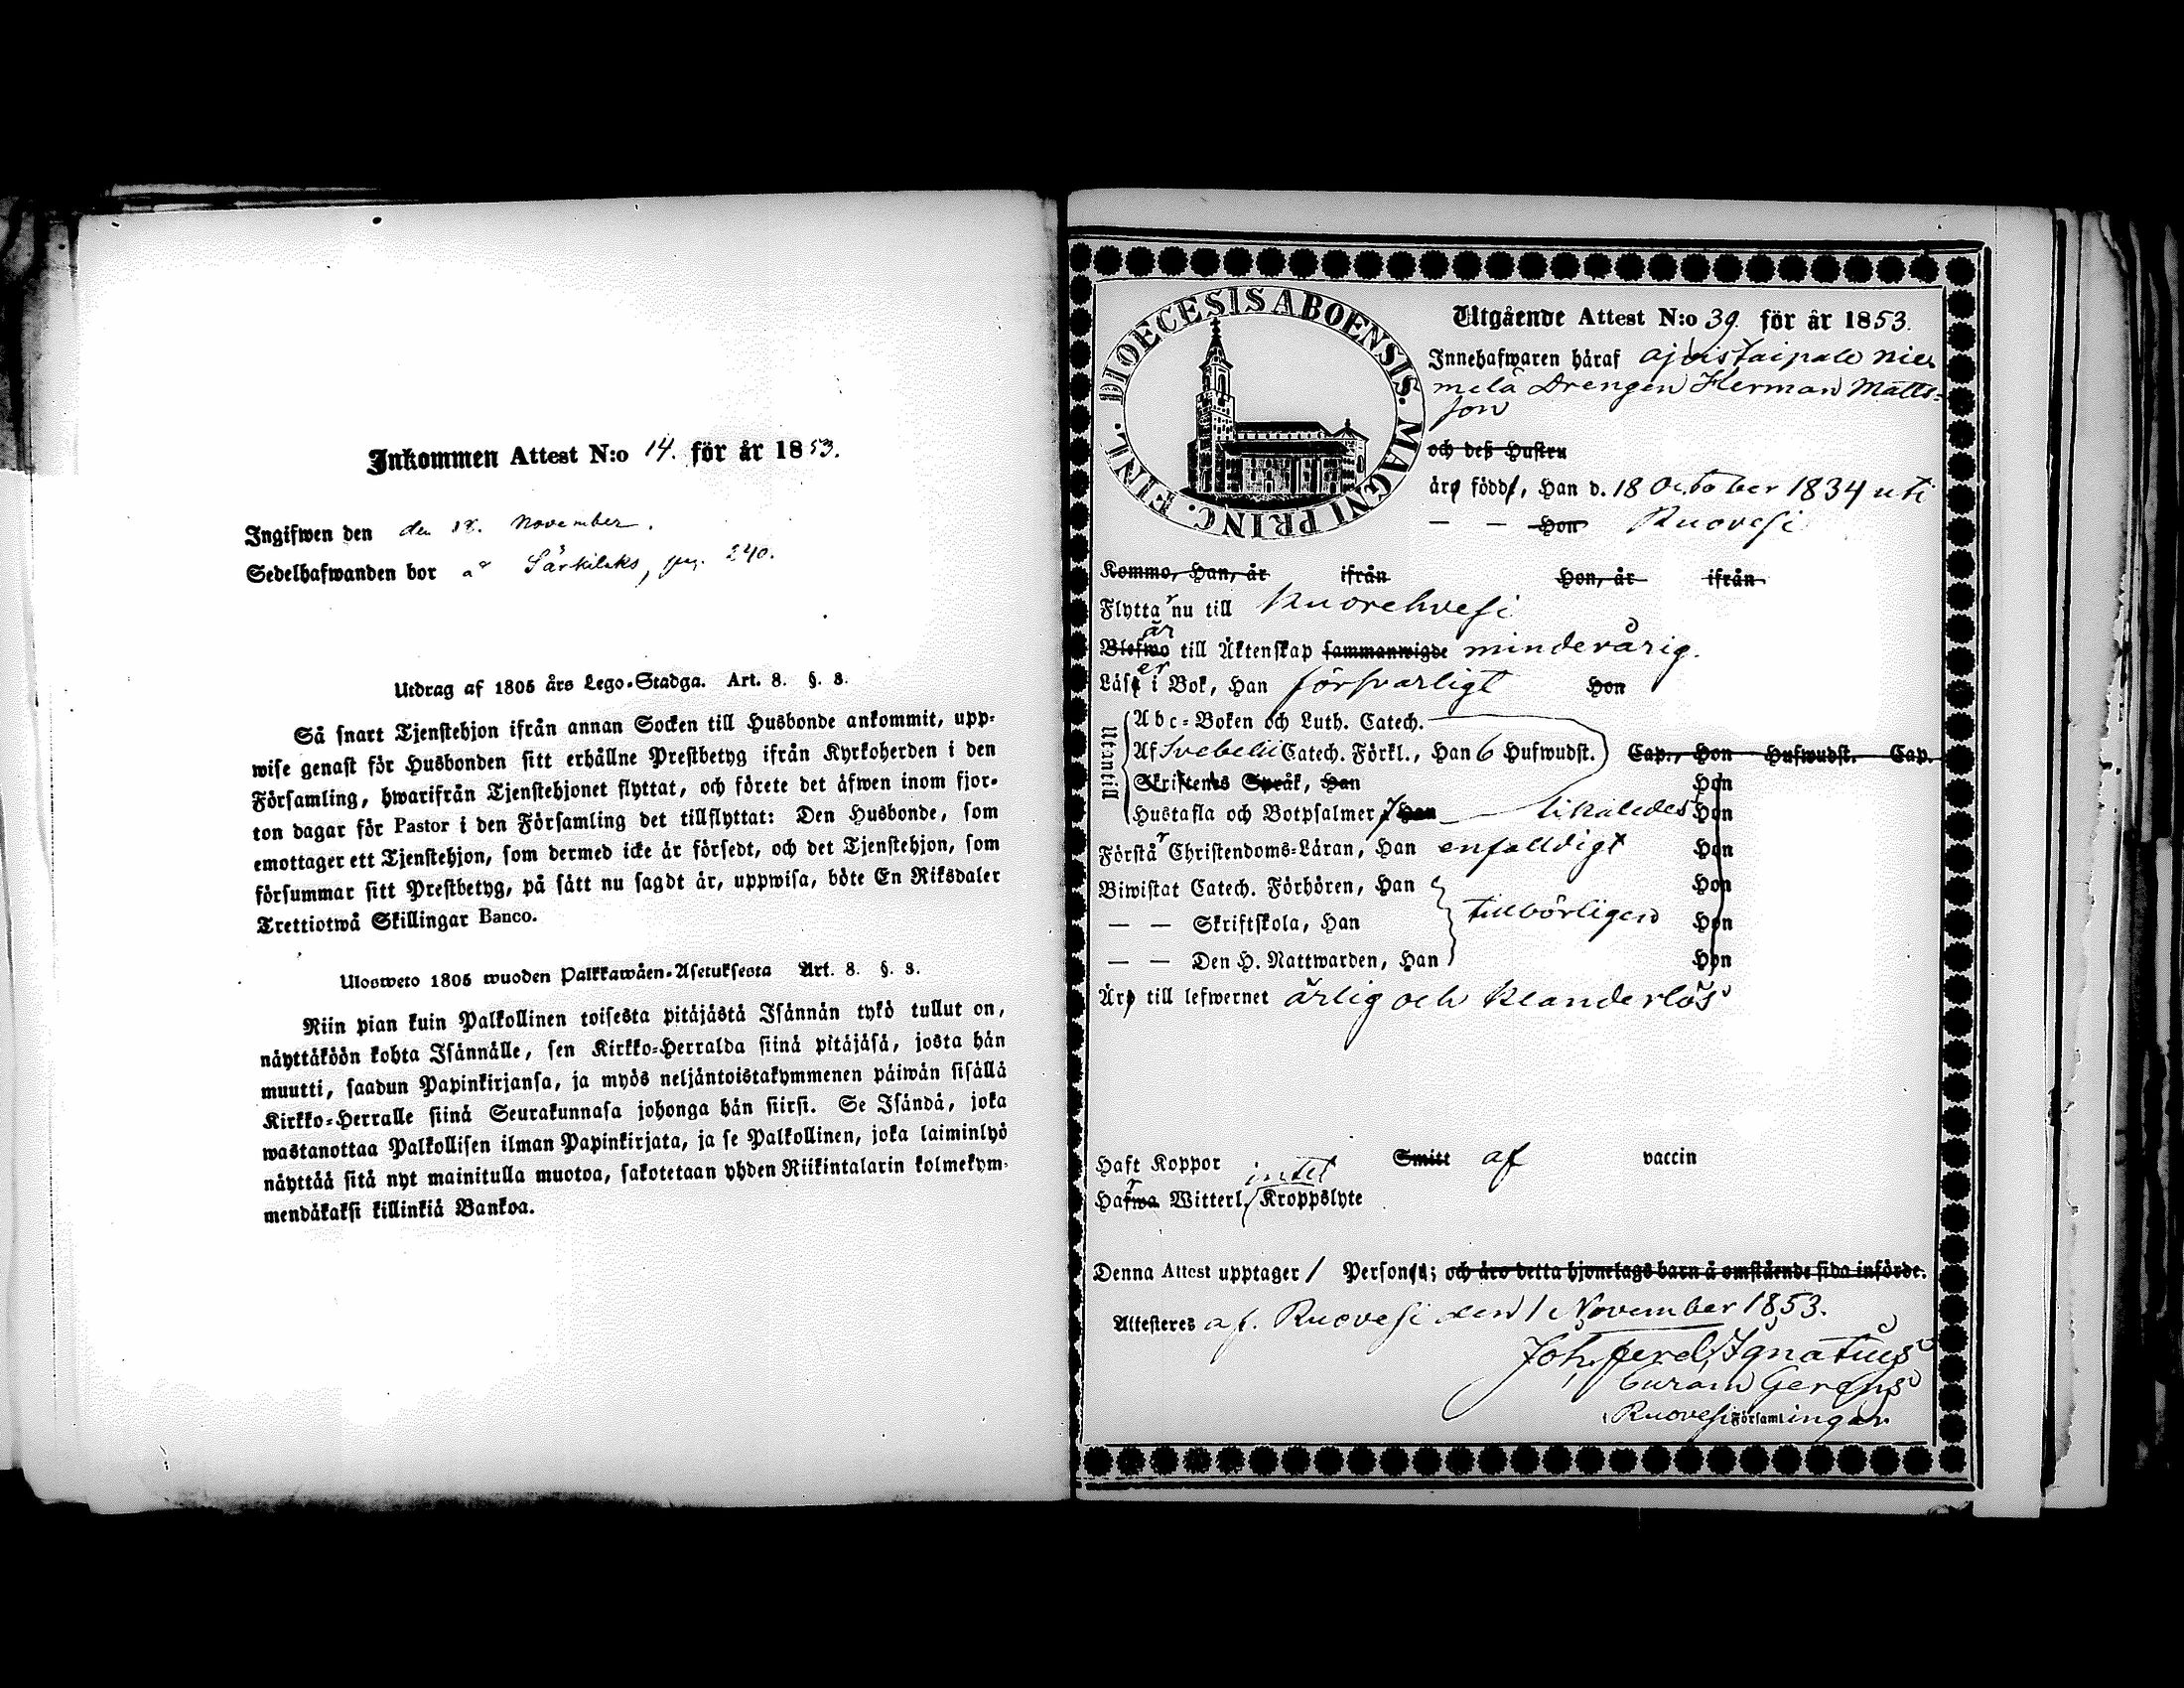 Inkommen Attest N:o 14. för år 1853.
Ingifwen den den 18. November.
Sedelhafwanden bor å Särkilaks, pag. 240.
Utdrag af 1805 års Lego-Stadga. Art. 8. §. 3.
Så snart Tjenstehjon ifrån annan Socken till Husbonde ankommit, upp-
wise genast för Husbonden sitt erhållne Prestbetyg ifrån Kyrkoherden i den
Församling, hwarifrån Tjenstehjonet flyttat, och förete det äfwen inom fjor-
ton dagar för Pastor i den Församling det tillflyttat: Den Husbonde, som
emottager ett Tjenstehjon, som dermed icke är försedt, och det Tjenstehjon, som
försummar sitt Prestbetyg, på sätt nu sagdt är, uppwisa, böte En Riksdaler
Trettiotwå Skillingar Banco.
Ulosweto 1805 wuoden Palkkawäen-Asetuksesta Art. 8. §. 3.
Niin pian kuin Palkollinen toisesta pitäjästä Isännän tykö tullut on,
näyttäköön kohta Isännälle, sen Kirkko-Herralda siinä pitäjäsä, josta hän
muutti, saadun Papinkirjansa, ja myös neljäntoistakymmenen päiwän sisällä
Kirkko-Herralle siinä Seurakunnasa johonga hän siirsi. Se Isändä, joka
wastanottaa Palkollisen ilman Papinkirjata, ja se Palkollinen, joka laiminlyö
näyttää sitä nyt mainitulla muotoa, sakotetaan yhden Riikintalarin kolmekym-
mendäkaksi killinkiä Bankoa.
DIOECESIS ABOENSIS. MAGNI PRINC. FINL.
Utgående Attest N:o 39. för år 1853.
Innehafwaren häraf
melä Drengen Herman Matts-
son
och deß Hustru
äro födde, Han d. 18 October 1834 uti
— — Hon Ruovesi
Kommo, Han, år ifrån Hon, år ifrån
Flyttar nu till Kuorehvesi
är
Blefwo till Äktenskap sammanwigde minderårig.
Läser i Bok, Han försvarligt Hon
Utantill
Abc-Boken och Luth. Catech.
Af Svebelii Catech. Förkl., Han 6 Hufwudst. Cap., Hon Hufwudst. Cap.
Skriftenes Språk, Han Hon
Hustafla och Botpsalmer, Han likaledes Hon
Förstår Christendoms-Läran, Han enfalldigt Hon
Biwistat Catech. Förhören, Han Hon
— — Skriftskola, Han tillbörligen Hon
— — Den H. Nattwarden, Han Hon
Äro till lefwernet ärlig och klanderlös
Haft Koppor Smitt af vaccin
intet
Hafwa Witterl. Kroppslyte
Denna Attest upptager 1 Person; och äro detta hjonelags barn å omstående sida införde.
Attesteres af. Ruovesi den 1 November 1853.
Joh. Ferd. Ignatius
Curam Gerens
i Ruovesi Församlingar